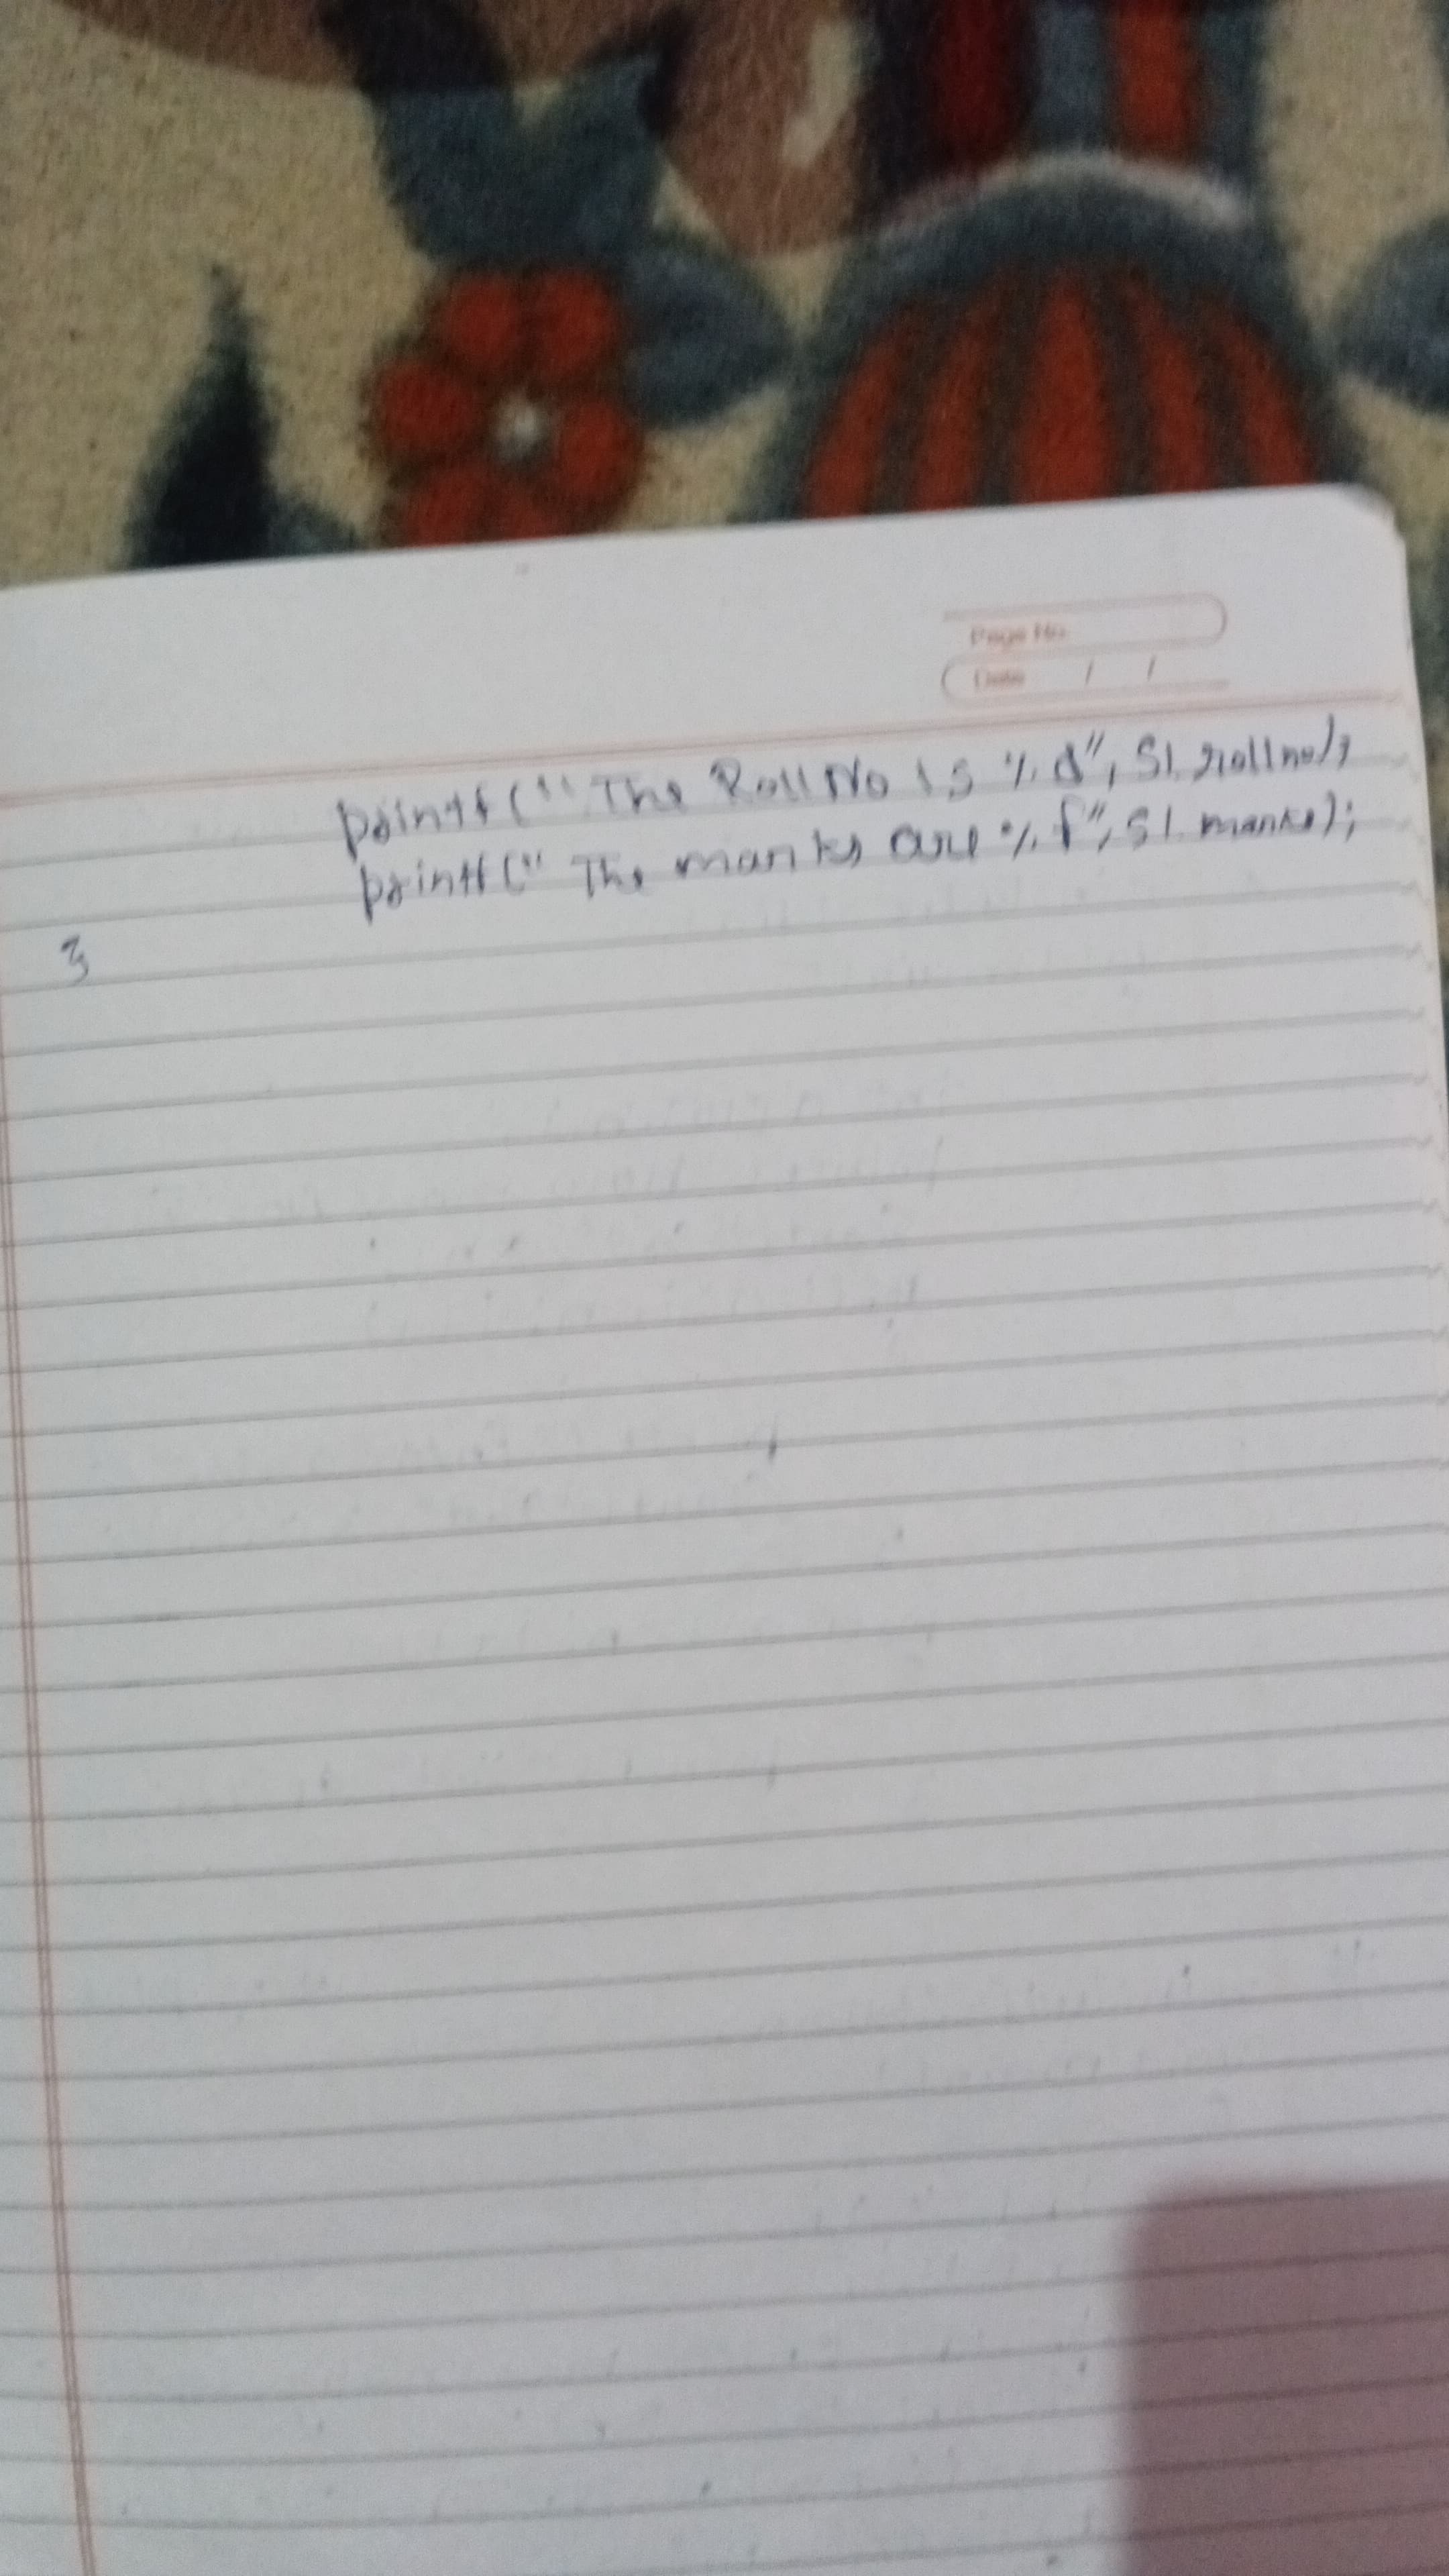 Page No.
Date / /
printf("The Roll No is %d", S1.rollno);
printf("The marks are %f", S1.marks);
}